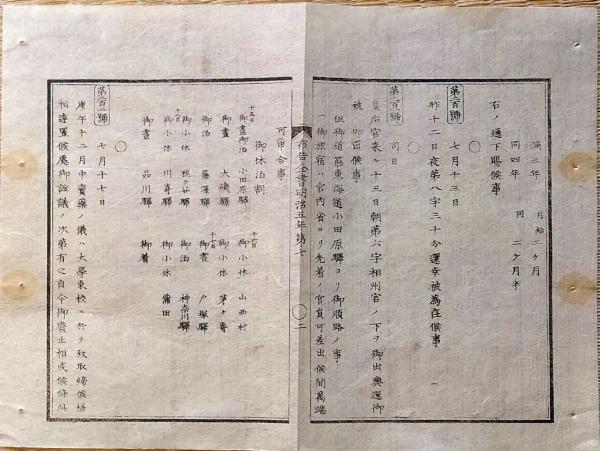 満三年 月給二ケ月
同四年 同二ケ月半
右ノ通下賜候事
第二百號 七月十三日
昨十二日夜第八字三十分還幸被為在候事
同日
皇后宮来ル十三日朝第六字相州宮ノ下ヲ御出輿還御
御治定候事
但御道筋東海道小田原驛ヨリ御順路ノ事
一御旅宿ハ宮内省ヨリ先着ノ官員可差出候間萬端
可申合事
布告全書明治五年第七 〇二
御休泊割
十五日
御晝御泊 小田原驛
十六日
御小休 山西村
御晝 大磯驛
御小休 茅ケ崎
御泊 藤澤驛
十七日
御晝 戸塚驛
御小休
御泊 神奈川驛
十八日
御小休 川崎驛
御小休 蒲田
御晝 品川驛
御着
七月十七日
庚午十二月中賣藥ノ儀ハ大學東校ニ於テ致取締候様
相達置候處御詮議ノ次第有之自今御廃止相成候條此